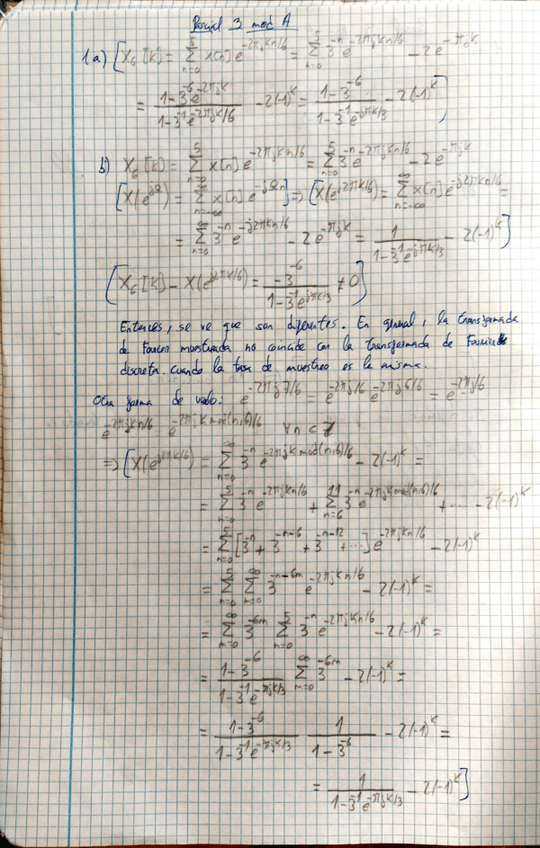 Parcial 3 mod A
1a) [X₆[k] = Σ_{n=0}^{5} x[n] e^{-2πjkn/6} = Σ_{n=0}^{5} 3^{-n} e^{-2πjkn/6} - 2e^{-πjk}
= (1-3^{-6}e^{-2πjk})/(1-3^{-1}e^{-2πjk/6}) - 2(-1)^k = (1-3^{-6})/(1-3^{-1}e^{-jπk/3}) - 2(-1)^k]
b) X₆[k] = Σ_{n=0}^{5} x[n] e^{-2πjkn/6} = Σ_{n=0}^{5} 3^{-n} e^{-2πjkn/6} - 2e^{-πjk}
[X(e^{jΩ}) = Σ_{n=-∞}^{∞} x[n] e^{-jΩn}] => [X(e^{j2πk/6}) = Σ_{n=-∞}^{∞} x[n] e^{-j2πkn/6} =
= Σ_{n=0}^{∞} 3^{-n} e^{-j2πkn/6} - 2e^{-πjk} = 1/(1-3^{-1}e^{-jπk/3}) - 2(-1)^k]
[X₆[k] - X(e^{j2πk/6}) = -3^{-6}/(1-3^{-1}e^{-jπk/3}) ≠ 0]
Entonces, se ve que son diferentes. En general, la transformada
de Fourier muestreada no coincide con la transformada de Fourier
discreta cuando la tasa de muestreo es la misma.
Otra forma de verlo: e^{-2πj7/6} = e^{-2πj/6} e^{-2πj6/6} = e^{-2πj/6}
e^{-2πjkn/6} = e^{-2πjk mod(n;6)/6} ∀n ∈ Z
=> [X(e^{j2πk/6}) = Σ_{n=0}^{∞} 3^{-n} e^{-2πjk mod(n;6)/6} - 2(-1)^k =
= Σ_{n=0}^{5} 3^{-n} e^{-2πjkn/6} + Σ_{n=6}^{11} 3^{-n} e^{-2πjk mod(n;6)/6} + ... - 2(-1)^k
= Σ_{n=0}^{5} [3^{-n} + 3^{-n-6} + 3^{-n-12} + ...] e^{-2πjkn/6} - 2(-1)^k
= Σ_{n=0}^{5} Σ_{m=0}^{∞} 3^{-n-6m} e^{-2πjkn/6} - 2(-1)^k =
= Σ_{m=0}^{∞} 3^{-6m} Σ_{n=0}^{5} 3^{-n} e^{-2πjkn/6} - 2(-1)^k =
= (1-3^{-6})/(1-3^{-1}e^{-πjk/3}) Σ_{m=0}^{∞} 3^{-6m} - 2(-1)^k =
= (1-3^{-6})/(1-3^{-1}e^{-πjk/3}) 1/(1-3^{-6}) - 2(-1)^k =
= 1/(1-3^{-1}e^{-πjk/3}) - 2(-1)^k]